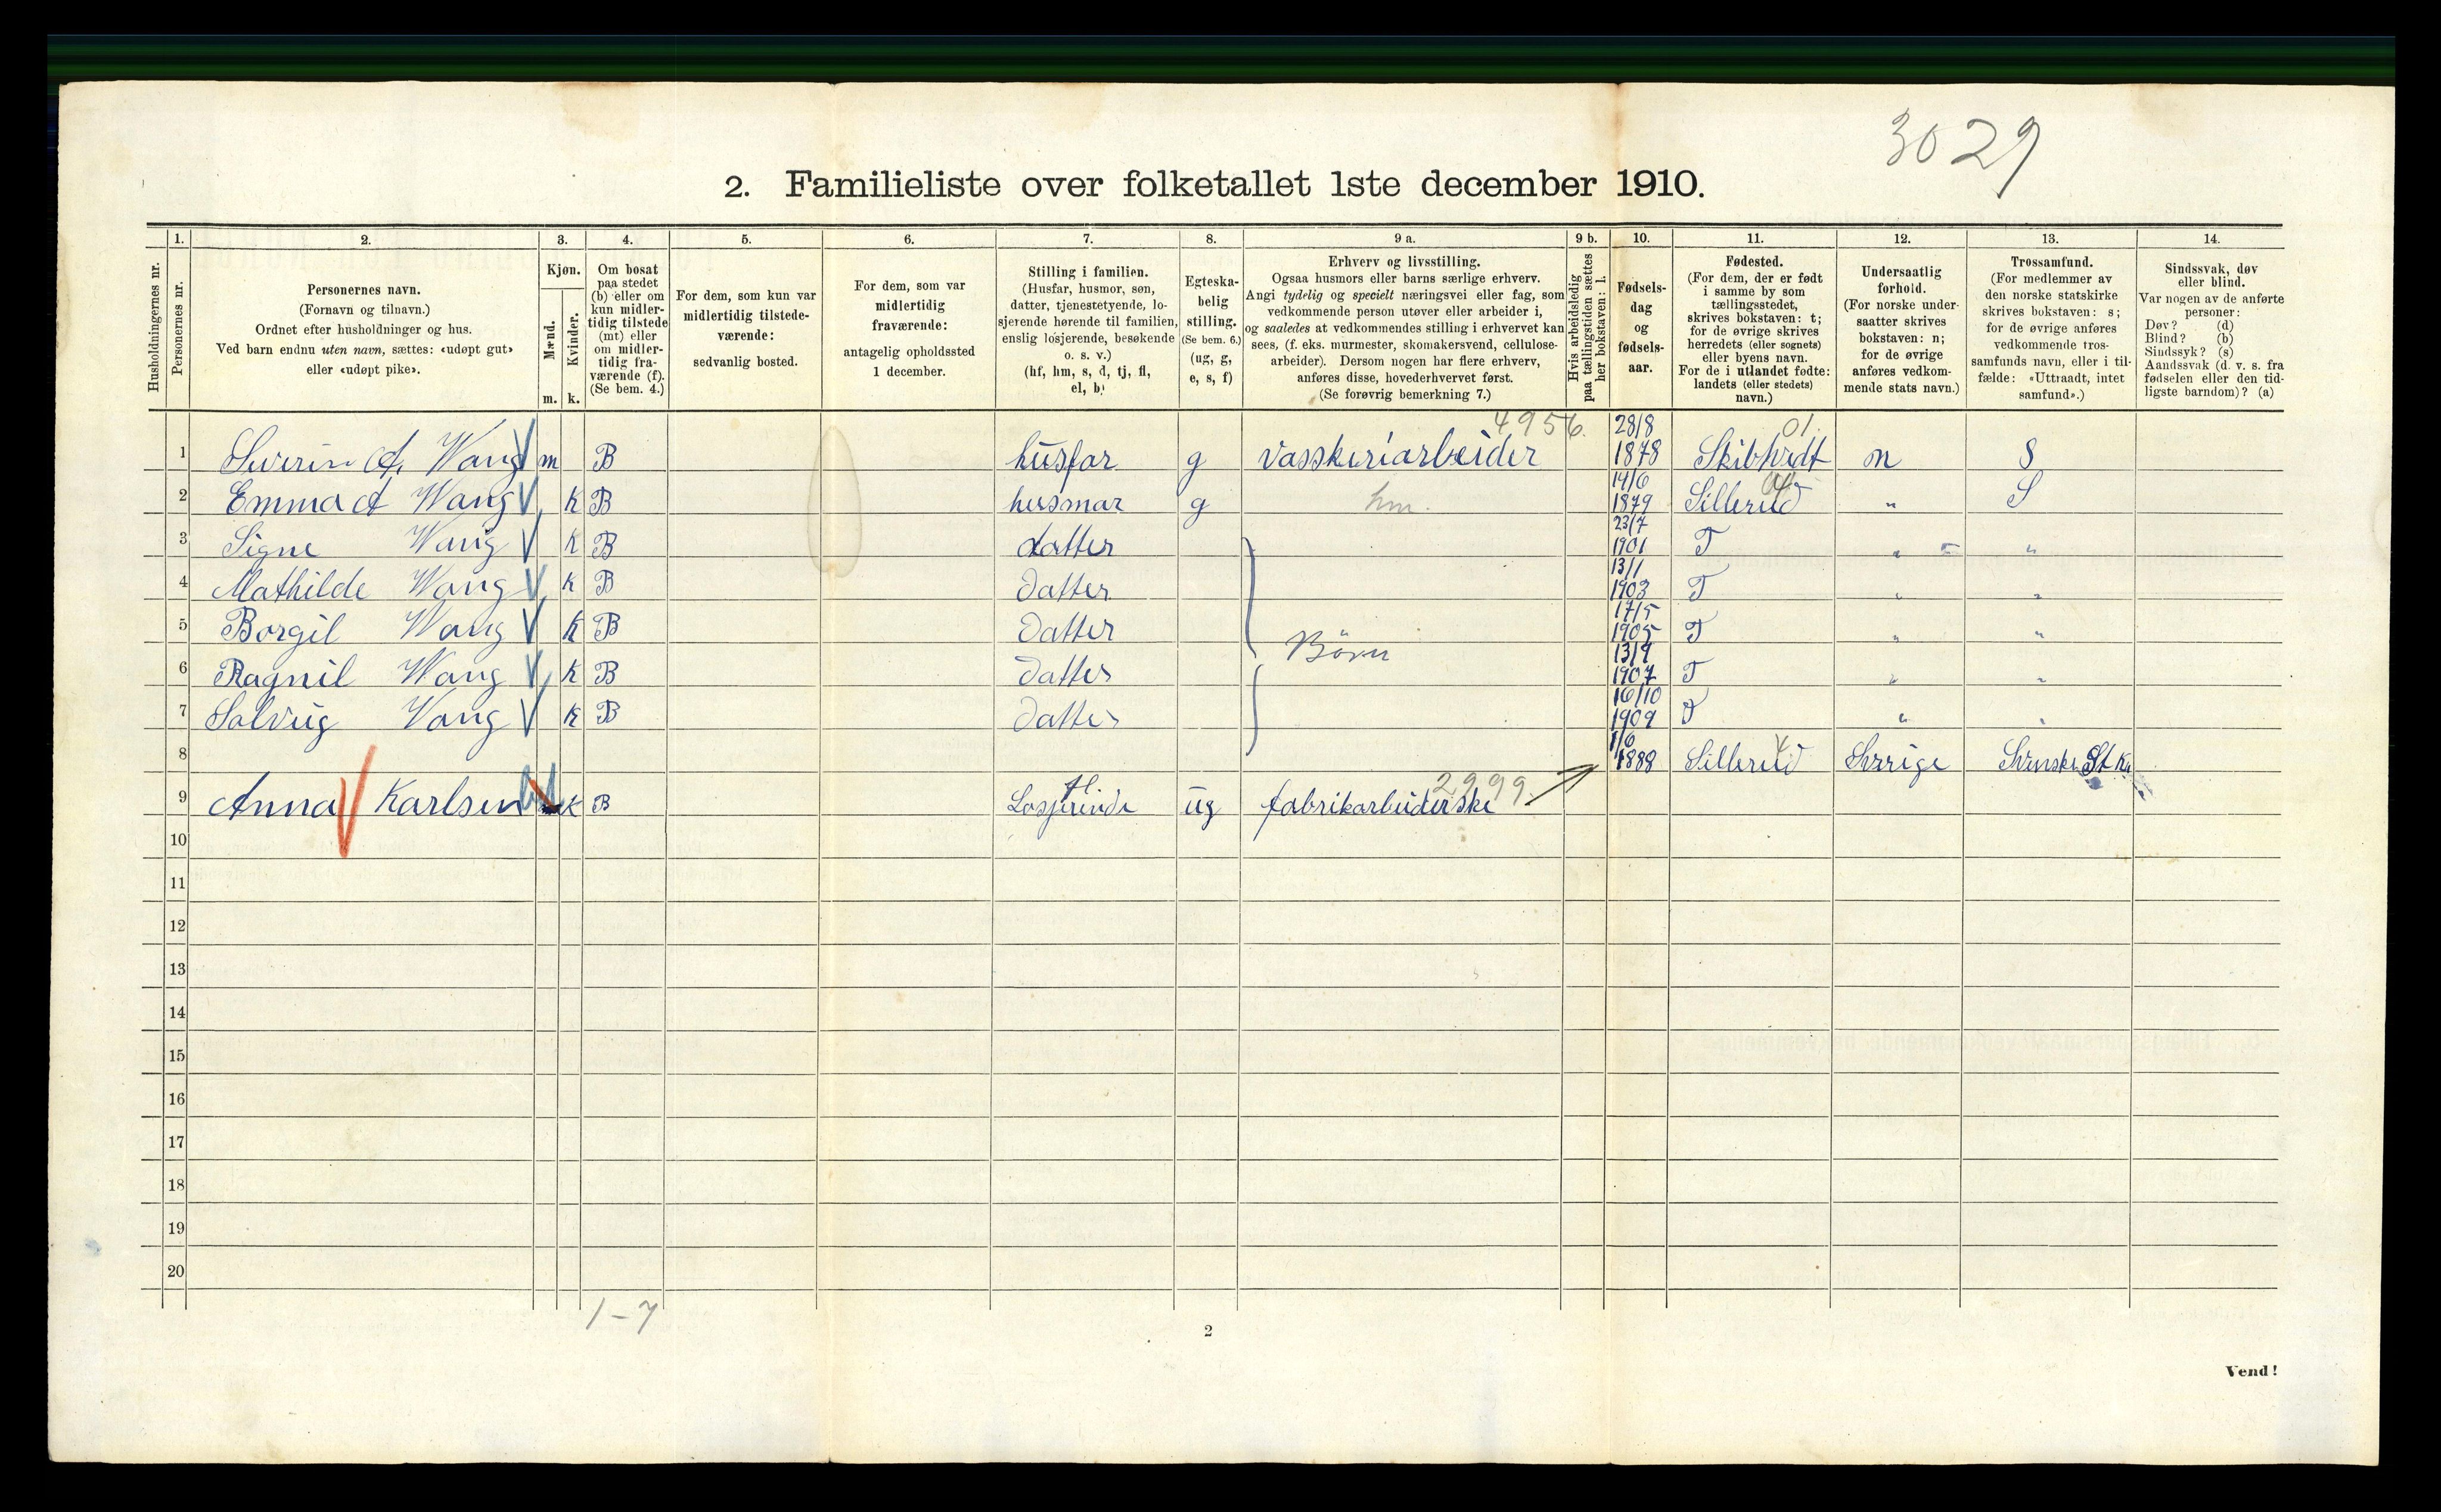 3029
2. Familieliste over folketallet 1ste december 1910.
1. 2. 3. 4. 5. 6. 7. 8. 9 a. 9 b. 10. 11. 12. 13. 14.
Husholdningernes nr.
Personernes nr.
Personernes navn.
(Fornavn og tilnavn.)
Ordnet efter husholdninger og hus.
Ved barn endnu uten navn, sættes: «udøpt gut»
eller «udøpt pike».
Kjøn.
Mænd.
Kvinder.
m. k.
Om bosat
paa stedet
(b) eller om
kun midler-
tidig tilstede
(mt) eller
om midler-
tidig fra-
værende (f).
(Se bem. 4.)
For dem, som kun var
midlertidig tilstede-
værende:
sedvanlig bosted.
For dem, som var
midlertidig
fraværende:
antagelig opholdssted
1 december.
Stilling i familien.
(Husfar, husmor, søn,
datter, tjenestetyende, lo-
sjerende hørende til familien,
enslig losjerende, besøkende
o. s. v.)
(hf, hm, s, d, tj, fl,
el, b)
Egteska-
belig
stilling.
(Se bem. 6.)
(ug, g,
e, s, f)
Erhverv og livsstilling.
Ogsaa husmors eller barns særlige erhverv.
Angi tydelig og specielt næringsvei eller fag, som
vedkommende person utøver eller arbeider i,
og saaledes at vedkommendes stilling i erhvervet kan
sees, (f. eks. murmester, skomakersvend, cellulose-
arbeider). Dersom nogen har flere erhverv,
anføres disse, hovederhvervet først.
(Se forøvrig bemerkning 7.)
Hvis arbeidsledig
paa tællingstiden sættes
her bokstaven: l.
Fødsels-
dag
og
fødsels-
aar.
Fødested.
(For dem, der er født
i samme by som
tællingsstedet,
skrives bokstaven: t;
for de øvrige skrives
herredets (eller sognets)
eller byens navn.
For de i utlandet fødte:
landets (eller stedets)
navn.)
Undersaatlig
forhold.
(For norske under-
saatter skrives
bokstaven: n;
for de øvrige
anføres vedkom-
mende stats navn.)
Trossamfund.
(For medlemmer av
den norske statskirke
skrives bokstaven: s;
for de øvrige anføres
vedkommende tros-
samfunds navn, eller i til-
fælde: «Uttraadt, intet
samfund».)
Sindssvak, døv
eller blind.
Var nogen av de anførte
personer:
Døv? (d)
Blind? (b)
Sindssyk? (s)
Aandssvak (d. v. s. fra
fødselen eller den tid-
ligste barndom)? (a)
4956. 28/8 01.
1 Wang m B husfar g vasskeriarbeider 1878 n S
14/6
2 Emma A Wang K B husmar g hm. 1879 Sillerud " S
23/7
3 Signe Wang K B datter 1901 T " "
13/1
4 Mathilde Wang K B datter 1903 T " "
17/5
5 Borgil Wang K B datter 1905 T " "
Börn
13/9
6 Ragnil Wang K B datter 1907 T " "
16/10
7 Solvug Wang K B datter 1909 T " "
1/6 4
8 1888 Sillerud Sverige Svenske St K
fl 2999
9 Anna Karlsen K B Losjerinde ug fabrikarbeiderske
10
11
12
13
14
15
16
17
18
19
20
1-7
2
Vend!